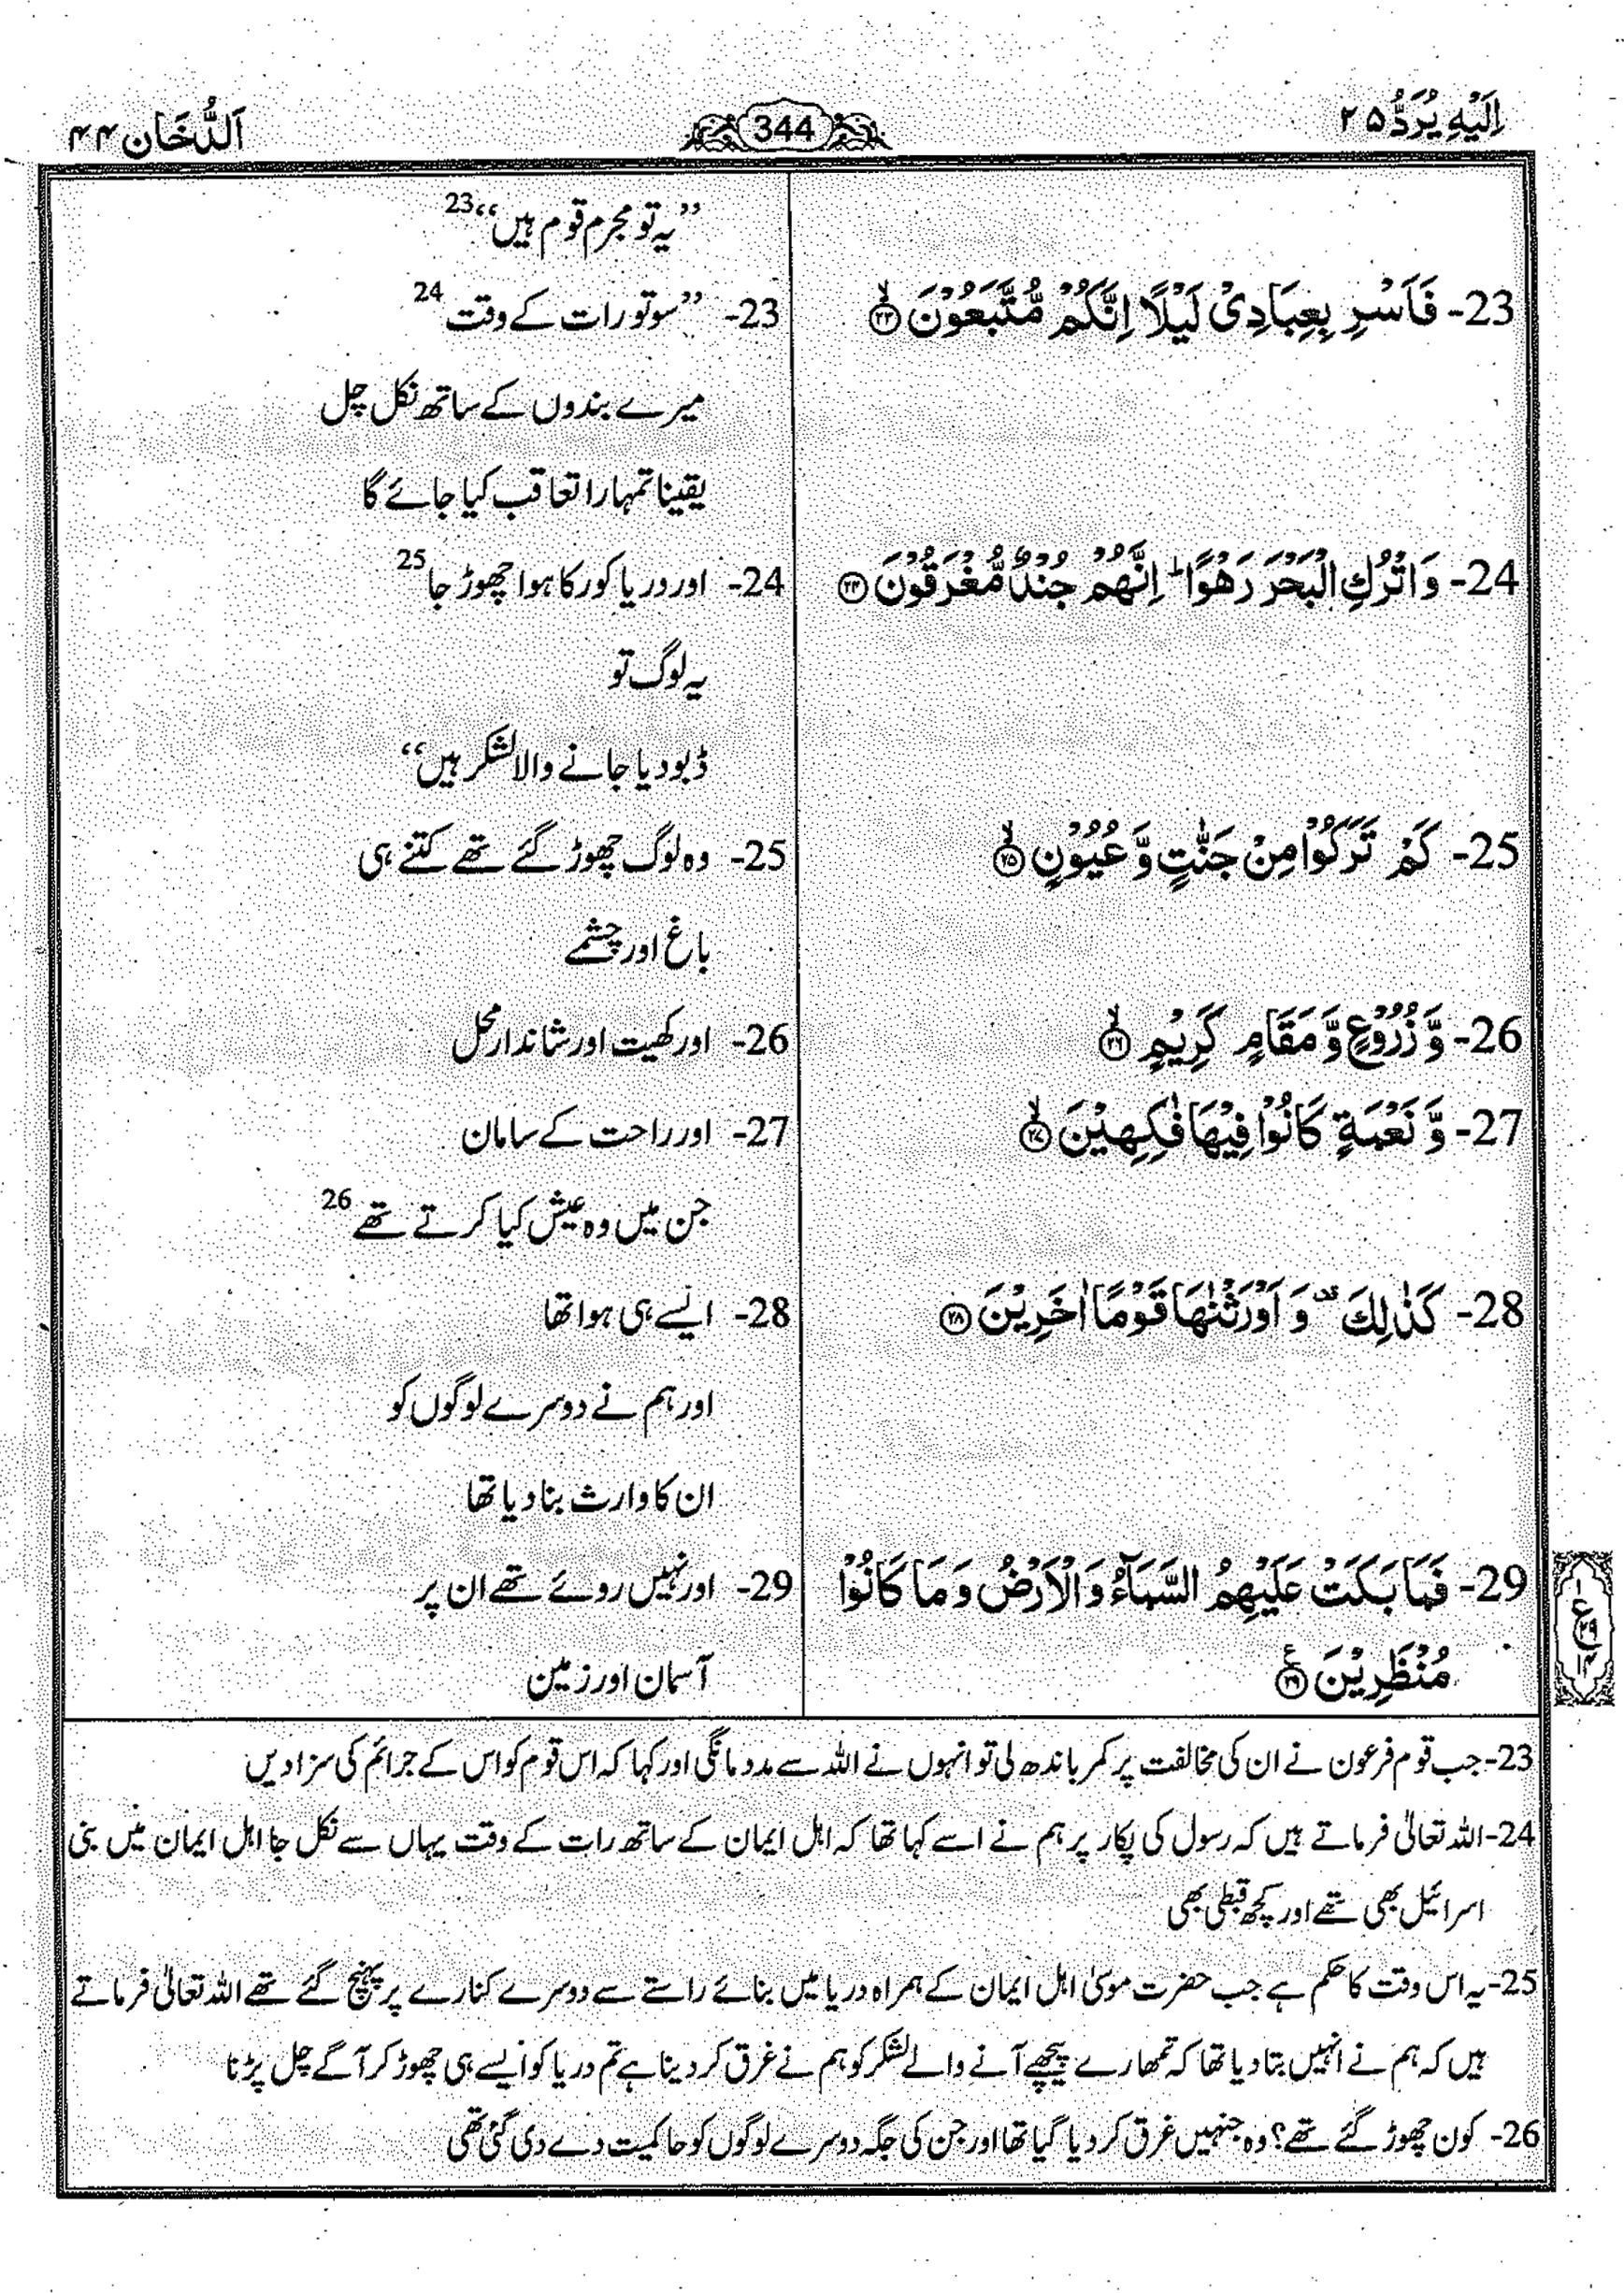 اِلَيْهِ يُرَدُّ ۲۵
344
اَلدُّخَان ۴۴
”یہ تو مجرم قوم ہیں“ 23
23- فَاَسْرِ بِعِبَادِیْ لَیْلًا اِنَّکُمْ مُّتَّبَعُوْنَ ۙ﴿۲۳﴾
23- ”سو تو رات کے وقت 24
میرے بندوں کے ساتھ نکل چل
یقینا تمہارا تعاقب کیا جائے گا
24- وَ اتْرُكِ الْبَحْرَ رَهْوًا ؕ اِنَّهُمْ جُنْدٌ مُّغْرَقُوْنَ ﴿۲۴﴾
24- اور دریا کو رکا ہوا چھوڑ جا 25
یہ لوگ تو
ڈبو دیا جانے والا لشکر ہیں“
25- کَمْ تَرَکُوْا مِنْ جَنّٰتٍ وَّ عُیُوْنٍ ۙ﴿۲۵﴾
25- وہ لوگ چھوڑ گئے تھے کتنے ہی
باغ اور چشمے
26- وَّ زُرُوْعٍ وَّ مَقَامٍ کَرِیْمٍ ۙ﴿۲۶﴾
26- اور کھیت اور شاندار محل
27- وَّ نَعْمَةٍ کَانُوْا فِیْهَا فٰکِهِیْنَ ۙ﴿۲۷﴾
27- اور راحت کے سامان
جن میں وہ عیش کیا کرتے تھے 26
28- کَذٰلِكَ ۟ وَ اَوْرَثْنٰهَا قَوْمًا اٰخَرِیْنَ ﴿۲۸﴾
28- ایسے ہی ہوا تھا
اور ہم نے دوسرے لوگوں کو
ان کا وارث بنا دیا تھا
29- فَمَا بَکَتْ عَلَیْهِمُ السَّمَآءُ وَ الْاَرْضُ وَ مَا کَانُوْا
مُنْظَرِیْنَ ﴿۲۹﴾
29- اور نہیں روئے تھے ان پر
آسمان اور زمین
23- جب قوم فرعون نے ان کی مخالفت پر کمر باندھ لی تو انہوں نے اللہ سے مدد مانگی اور کہا کہ اس قوم کو اس کے جرائم کی سزا دیں
24- اللہ تعالیٰ فرماتے ہیں کہ رسول کی پکار پر ہم نے اسے کہا تھا کہ اہل ایمان کے ساتھ رات کے وقت یہاں سے نکل جا اہل ایمان میں بنی
اسرائیل بھی تھے اور کچھ قبطی بھی
25- یہ اس وقت کا حکم ہے جب حضرت موسیٰ اہل ایمان کے ہمراہ دریا میں بنائے راستے سے دوسرے کنارے پر پہنچ گئے تھے اللہ تعالیٰ فرماتے
ہیں کہ ہم نے انہیں بتا دیا تھا کہ تمہارے پیچھے آنے والے لشکر کو ہم نے غرق کر دینا ہے تم دریا کو ایسے ہی چھوڑ کر آگے چل پڑنا
26- کون چھوڑ گئے تھے؟ وہ جنہیں غرق کر دیا گیا تھا اور جن کی جگہ دوسرے لوگوں کو حاکمیت دے دی گئی تھی